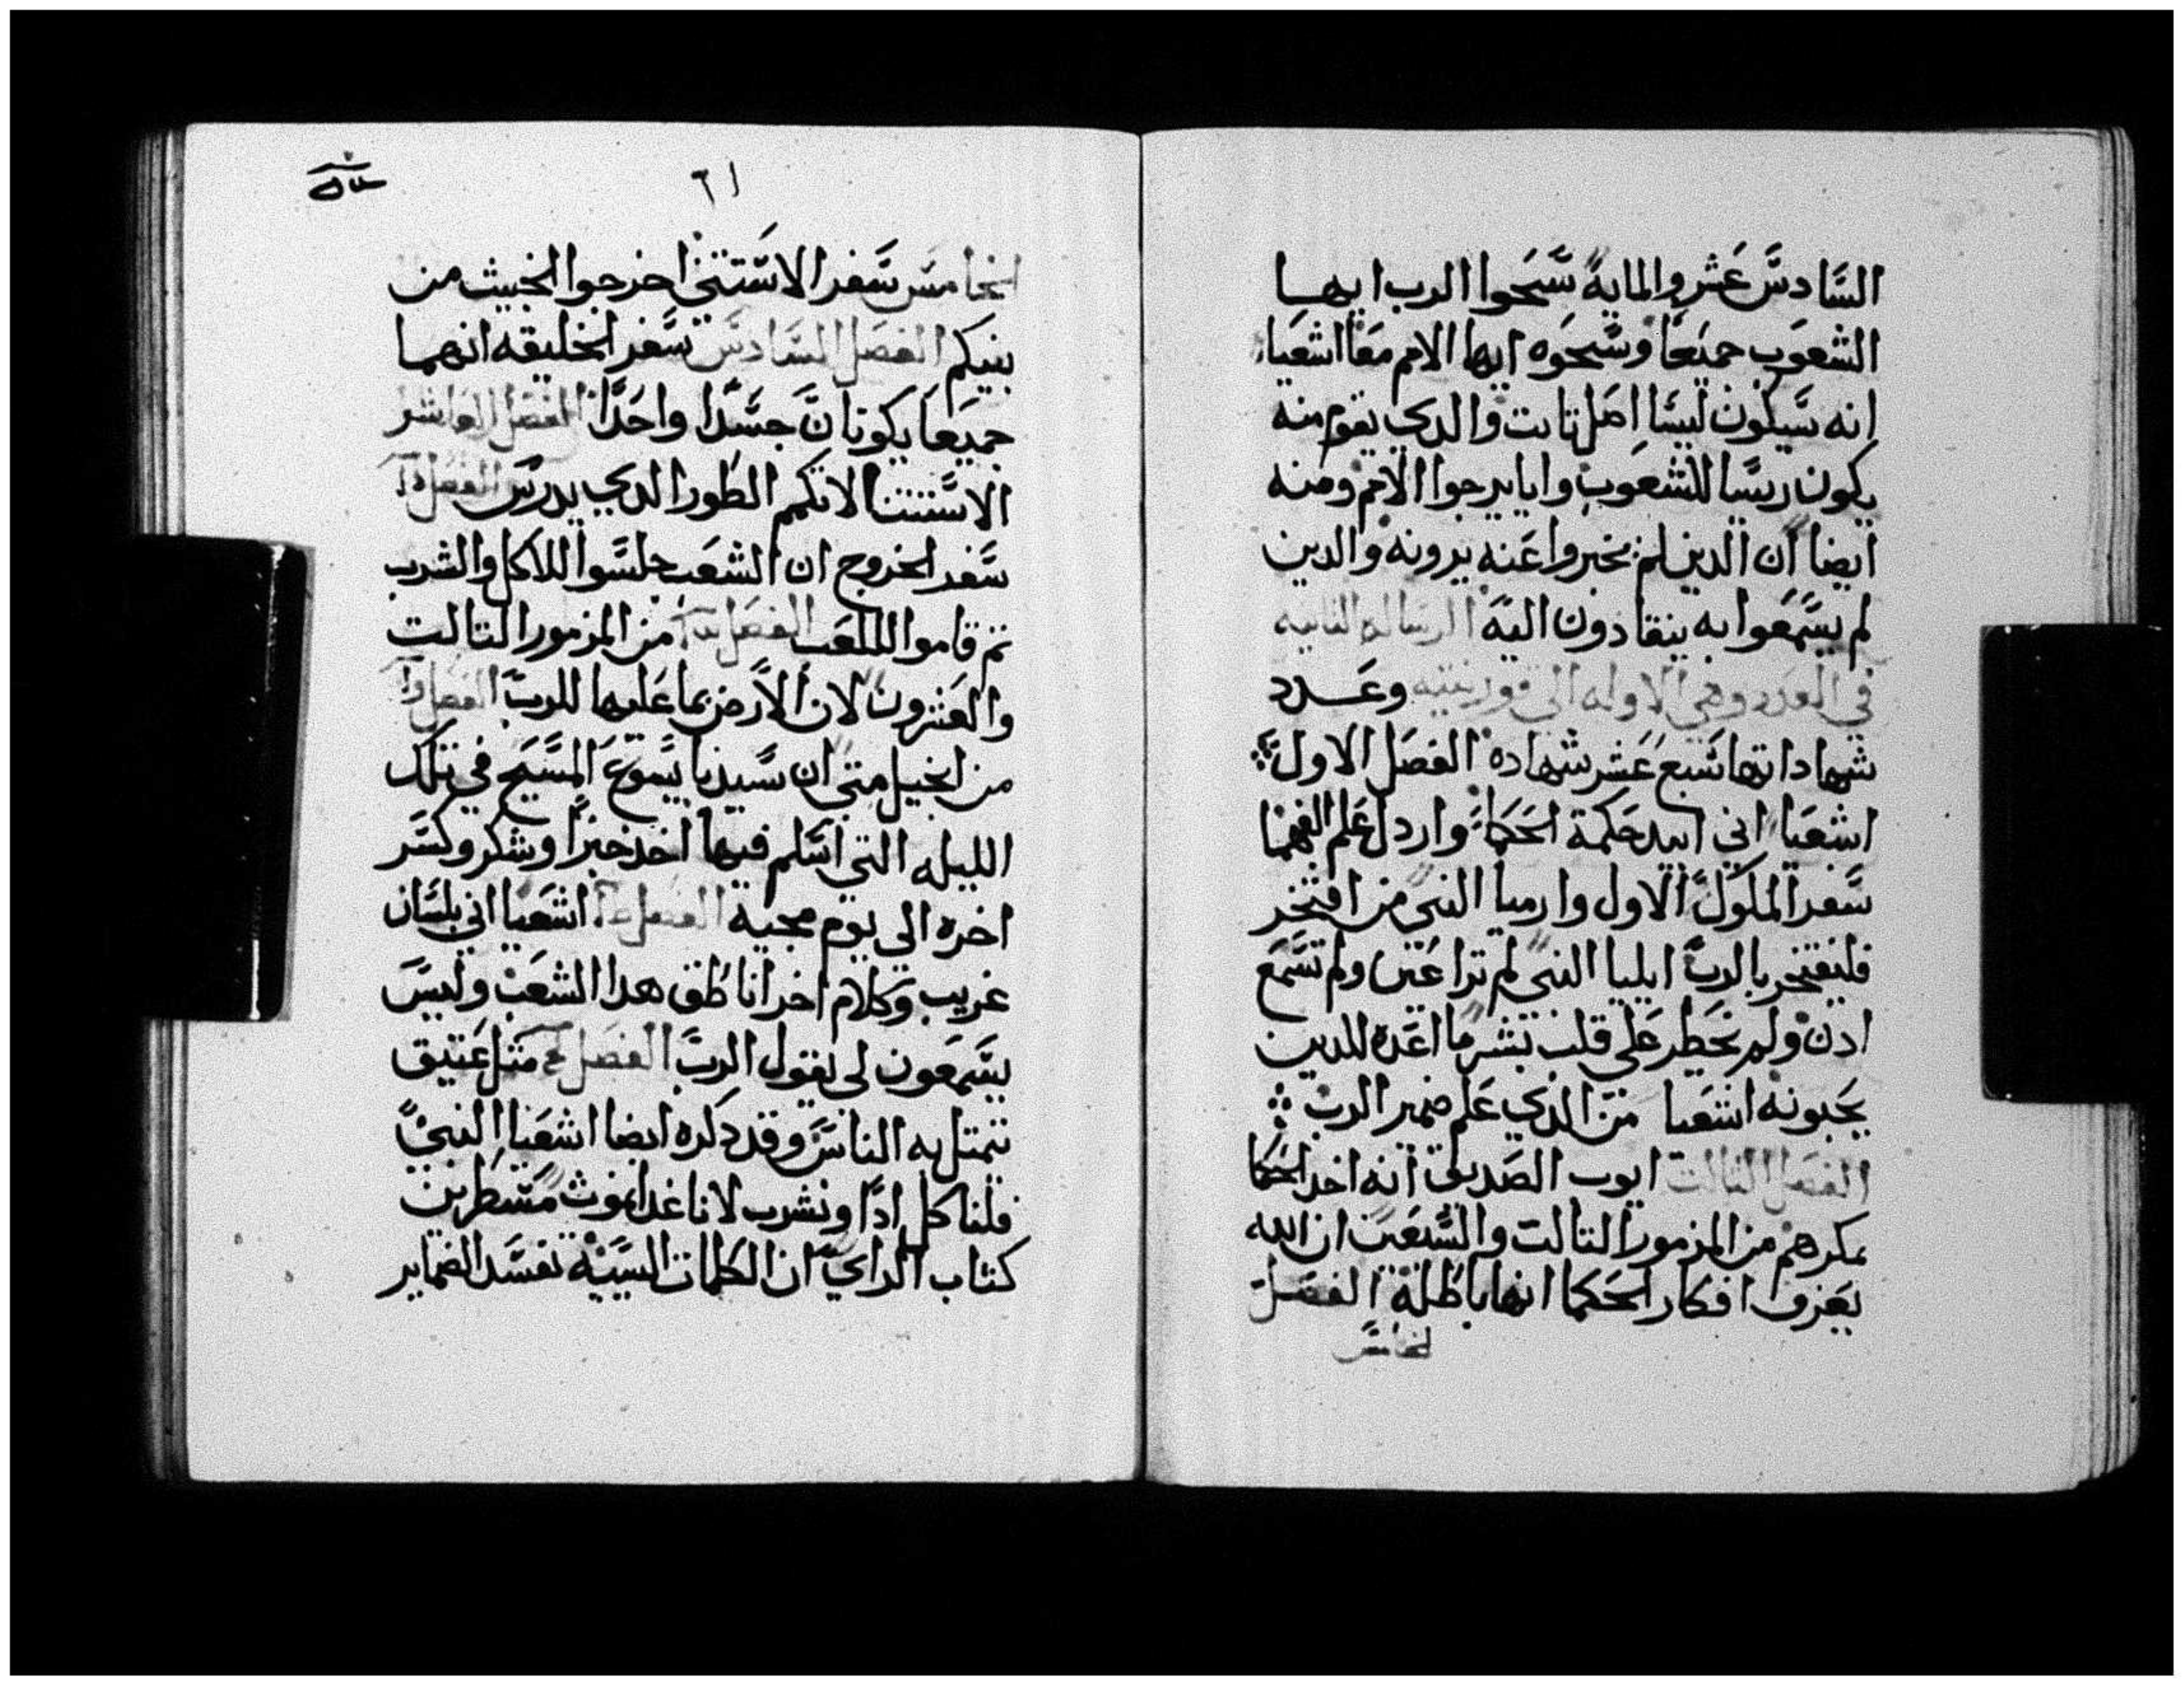 السادس عشر والماية سبحوا الرب ايها
الشعوب جميعا وسبحوه ايها الامم معا اشعيا
انه سيكون ليسا اصل تابت والدي يقوم منه
يكون ريسا للشعوب واياه يرجوا الامم ومنه
ايضا ان الدين لم يخبروا عنه يرونه والدين
لم يسمعوا به ينقادون اليه الرساله التانيه
في العدد وهي الاوله الى قورنتيه وعدد
شهاداتها سبع عشر شهادة الفصل الاول
اشعيا اني ابيد حكمة الحكما واردل علم الفهما
سفر الملوك الاول وارميا النبي من افتخر
فليفتخر بالرب ايليا النبي لم ترا عين ولم تسمع
ادن ولم يخطر على قلب بشر ما اعده للدين
يحبونه اشعيا من الدي علم ضمير الرب
الفصل التالت ايوب الصديق انه اخد الحكما
بمكرهم من المزمور التالت والتسعين ان الله
يعرف افكار الحكما انها باطلة الفصل
الخامس
٦١
الخامس سفر الاستتني اخرجوا الخبيث من
بينكم الفصل السادس سفر الخليقه انهما
جميعا يكونان جسدا واحدا الفصل العاشر
الاستتنا لا تكمم الطور الدي يدرس الفصل
سفر الخروج ان الشعب جلسوا للاكل والشرب
تم قاموا للملعب الفصل من المزمور التالت
والعشرون لان الارض بما عليها للرب الفصل
من انجيل متي ان سيدنا يسوع المسيح في تلك
الليله التي اسلم فيها اخد خبزا وشكر وكسر
اخره الى يوم مجيه الفصل اشعيا اني بلسان
غريب وكلام اخر اناطق هدا الشعب وليس
يسمعون لي يقول الرب الفصل متل عتيق
تتمتل به الناس وقد دكره ايضا اشعيا النبي
فلناكل ادا ونشرب لانا غدا نموت مسطر من
كتاب الراي ان الكلمات السيية تفسد الضماير